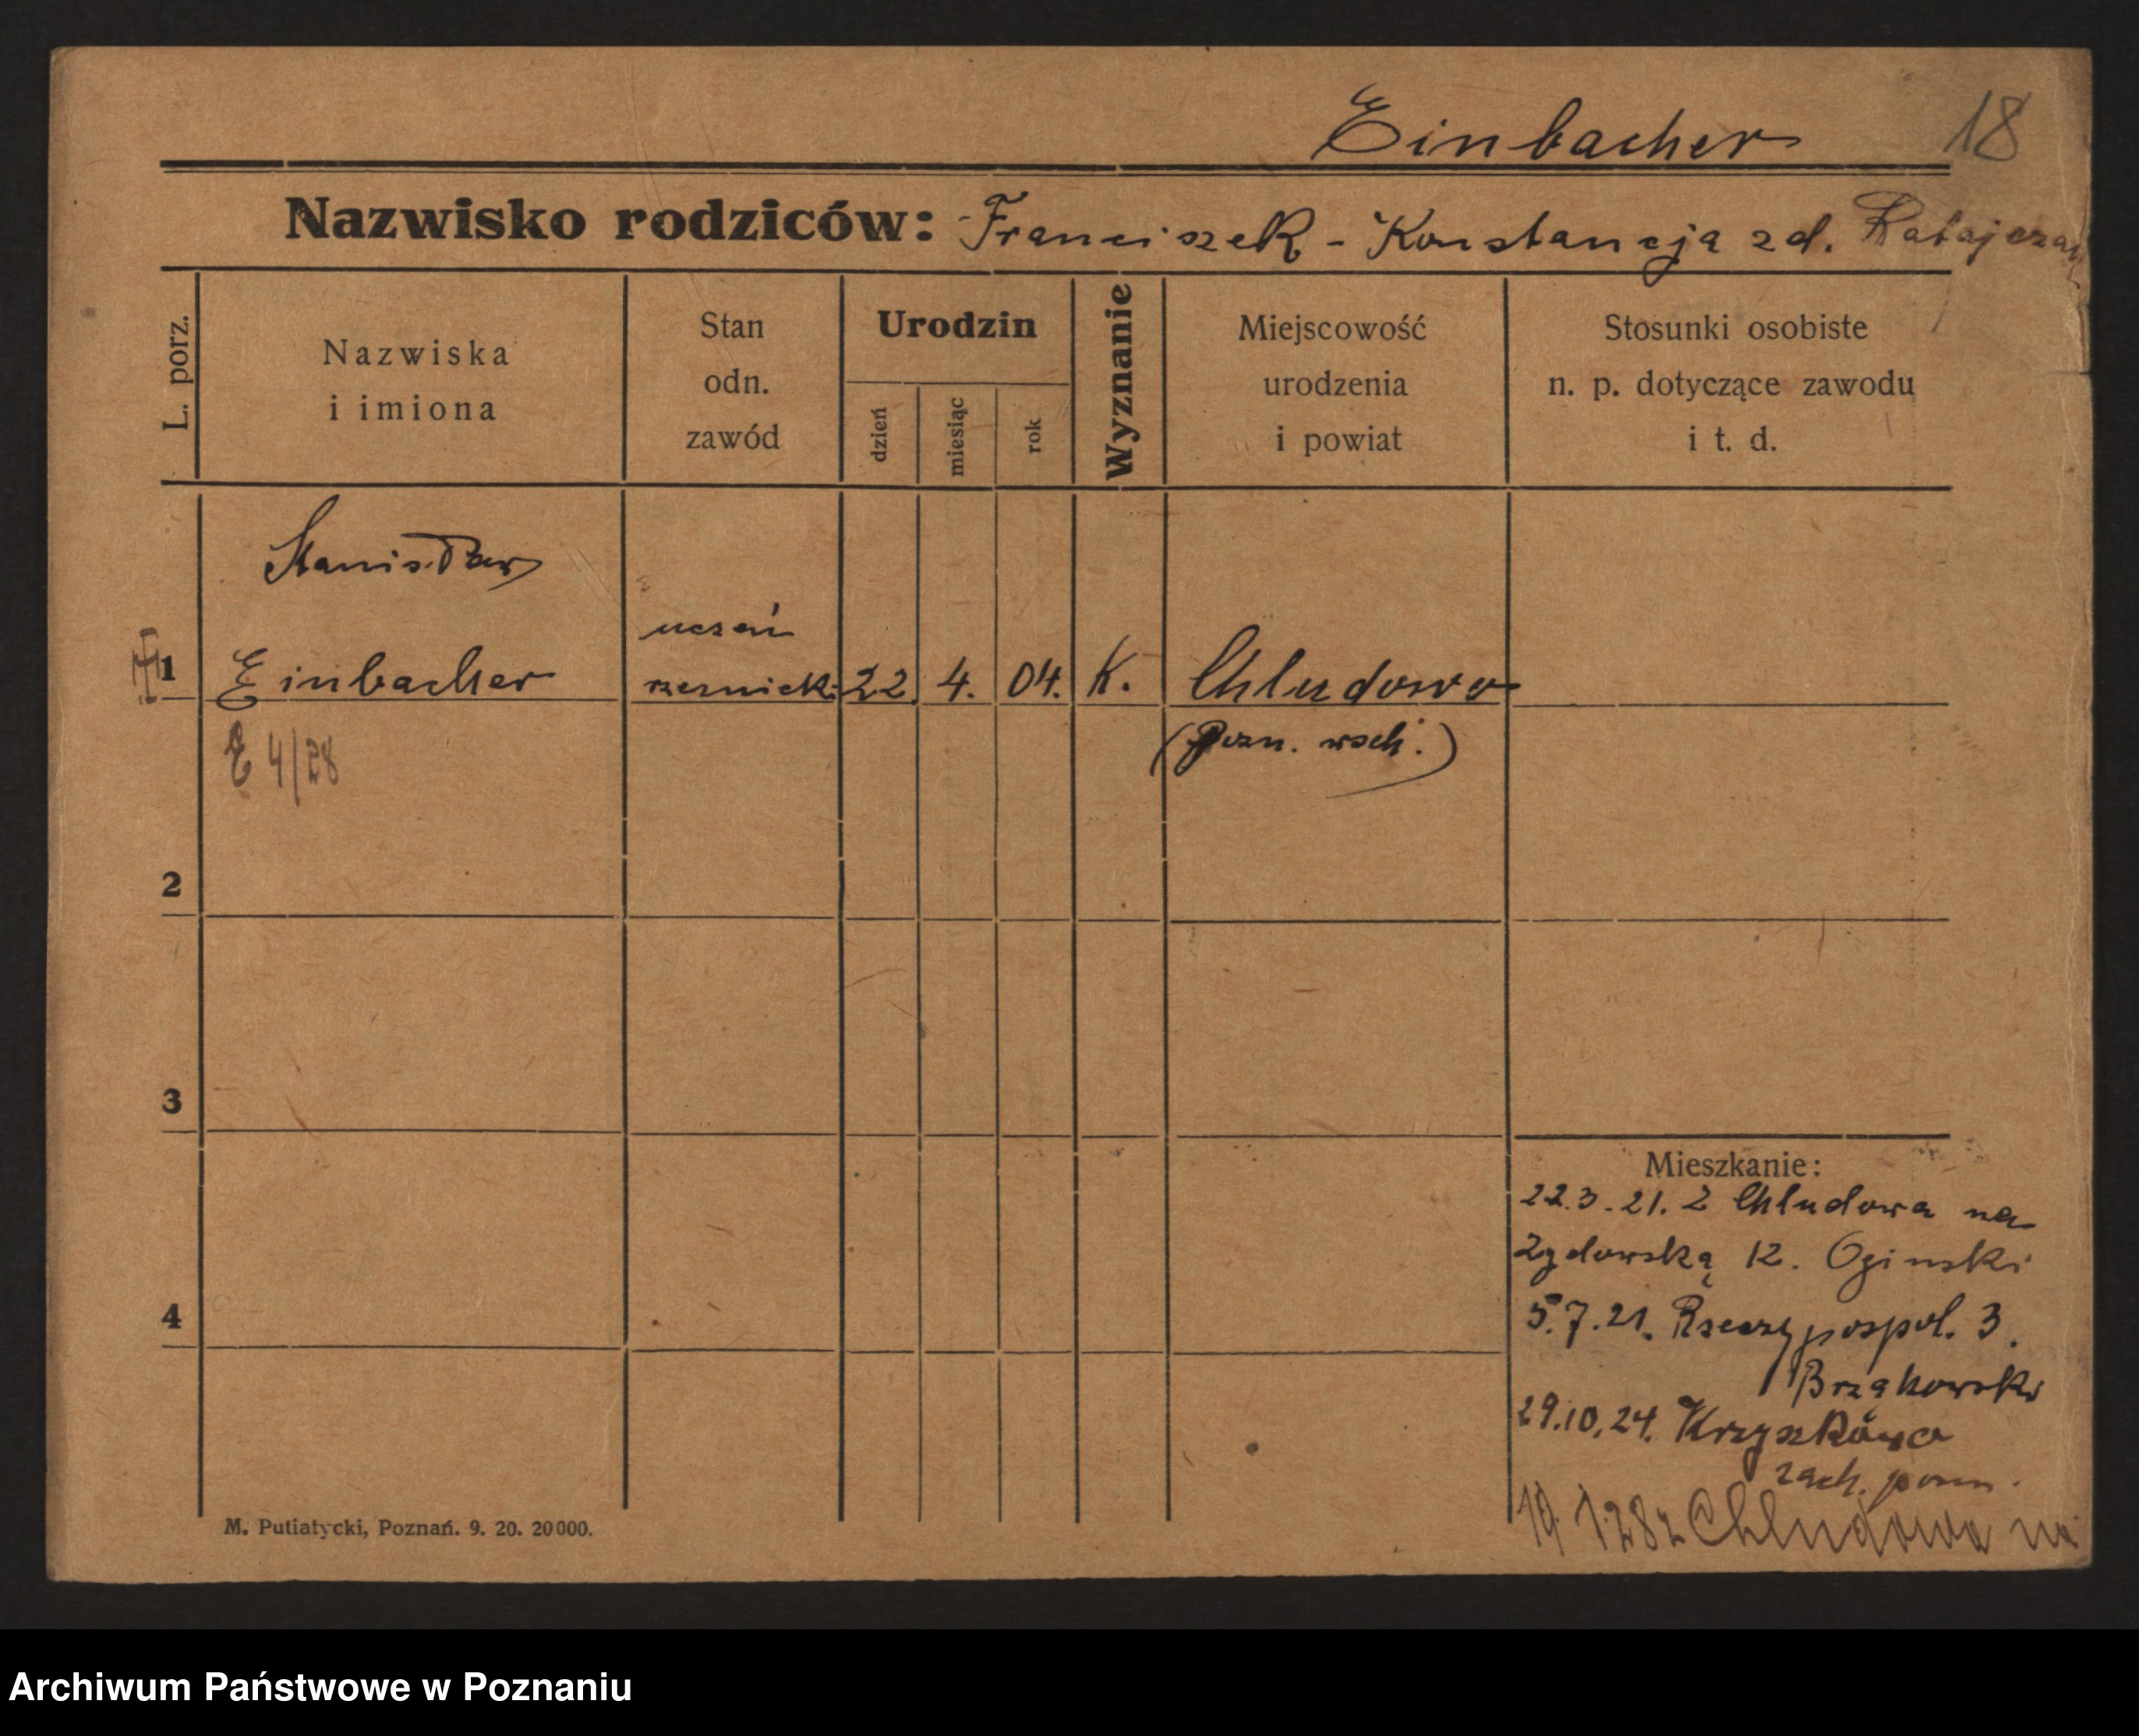 Einbacher 18
Nazwisko rodziców: Franciszek - Konstancja zd. Ratajczak
L. porz.
Nazwiska
i imiona
Stan
odn.
zawód
Urodzin
dzień
miesiąc
rok
Wyznanie
Miejscowość
urodzenia
i powiat
Stosunki osobiste
n. p. dotyczące zawodu
i t. d.
Stanisław
uczeń
1 Einbacher rzeźnicki 22. 4. 04. K. Chludowo
E 4/28 (Pozn. wsch.)
2
3
4
Mieszkanie:
22.3.21. Z Chludowa na
Żydowską 12. Oginski
5.7.21. Rzeczypospol. 3.
Brzękowski
29.10.24. Krzyszkowo
zach. pozn.
19 1.28 z Chludowa na
M. Putiatycki, Poznań. 9. 20. 20000.
Archiwum Państwowe w Poznaniu